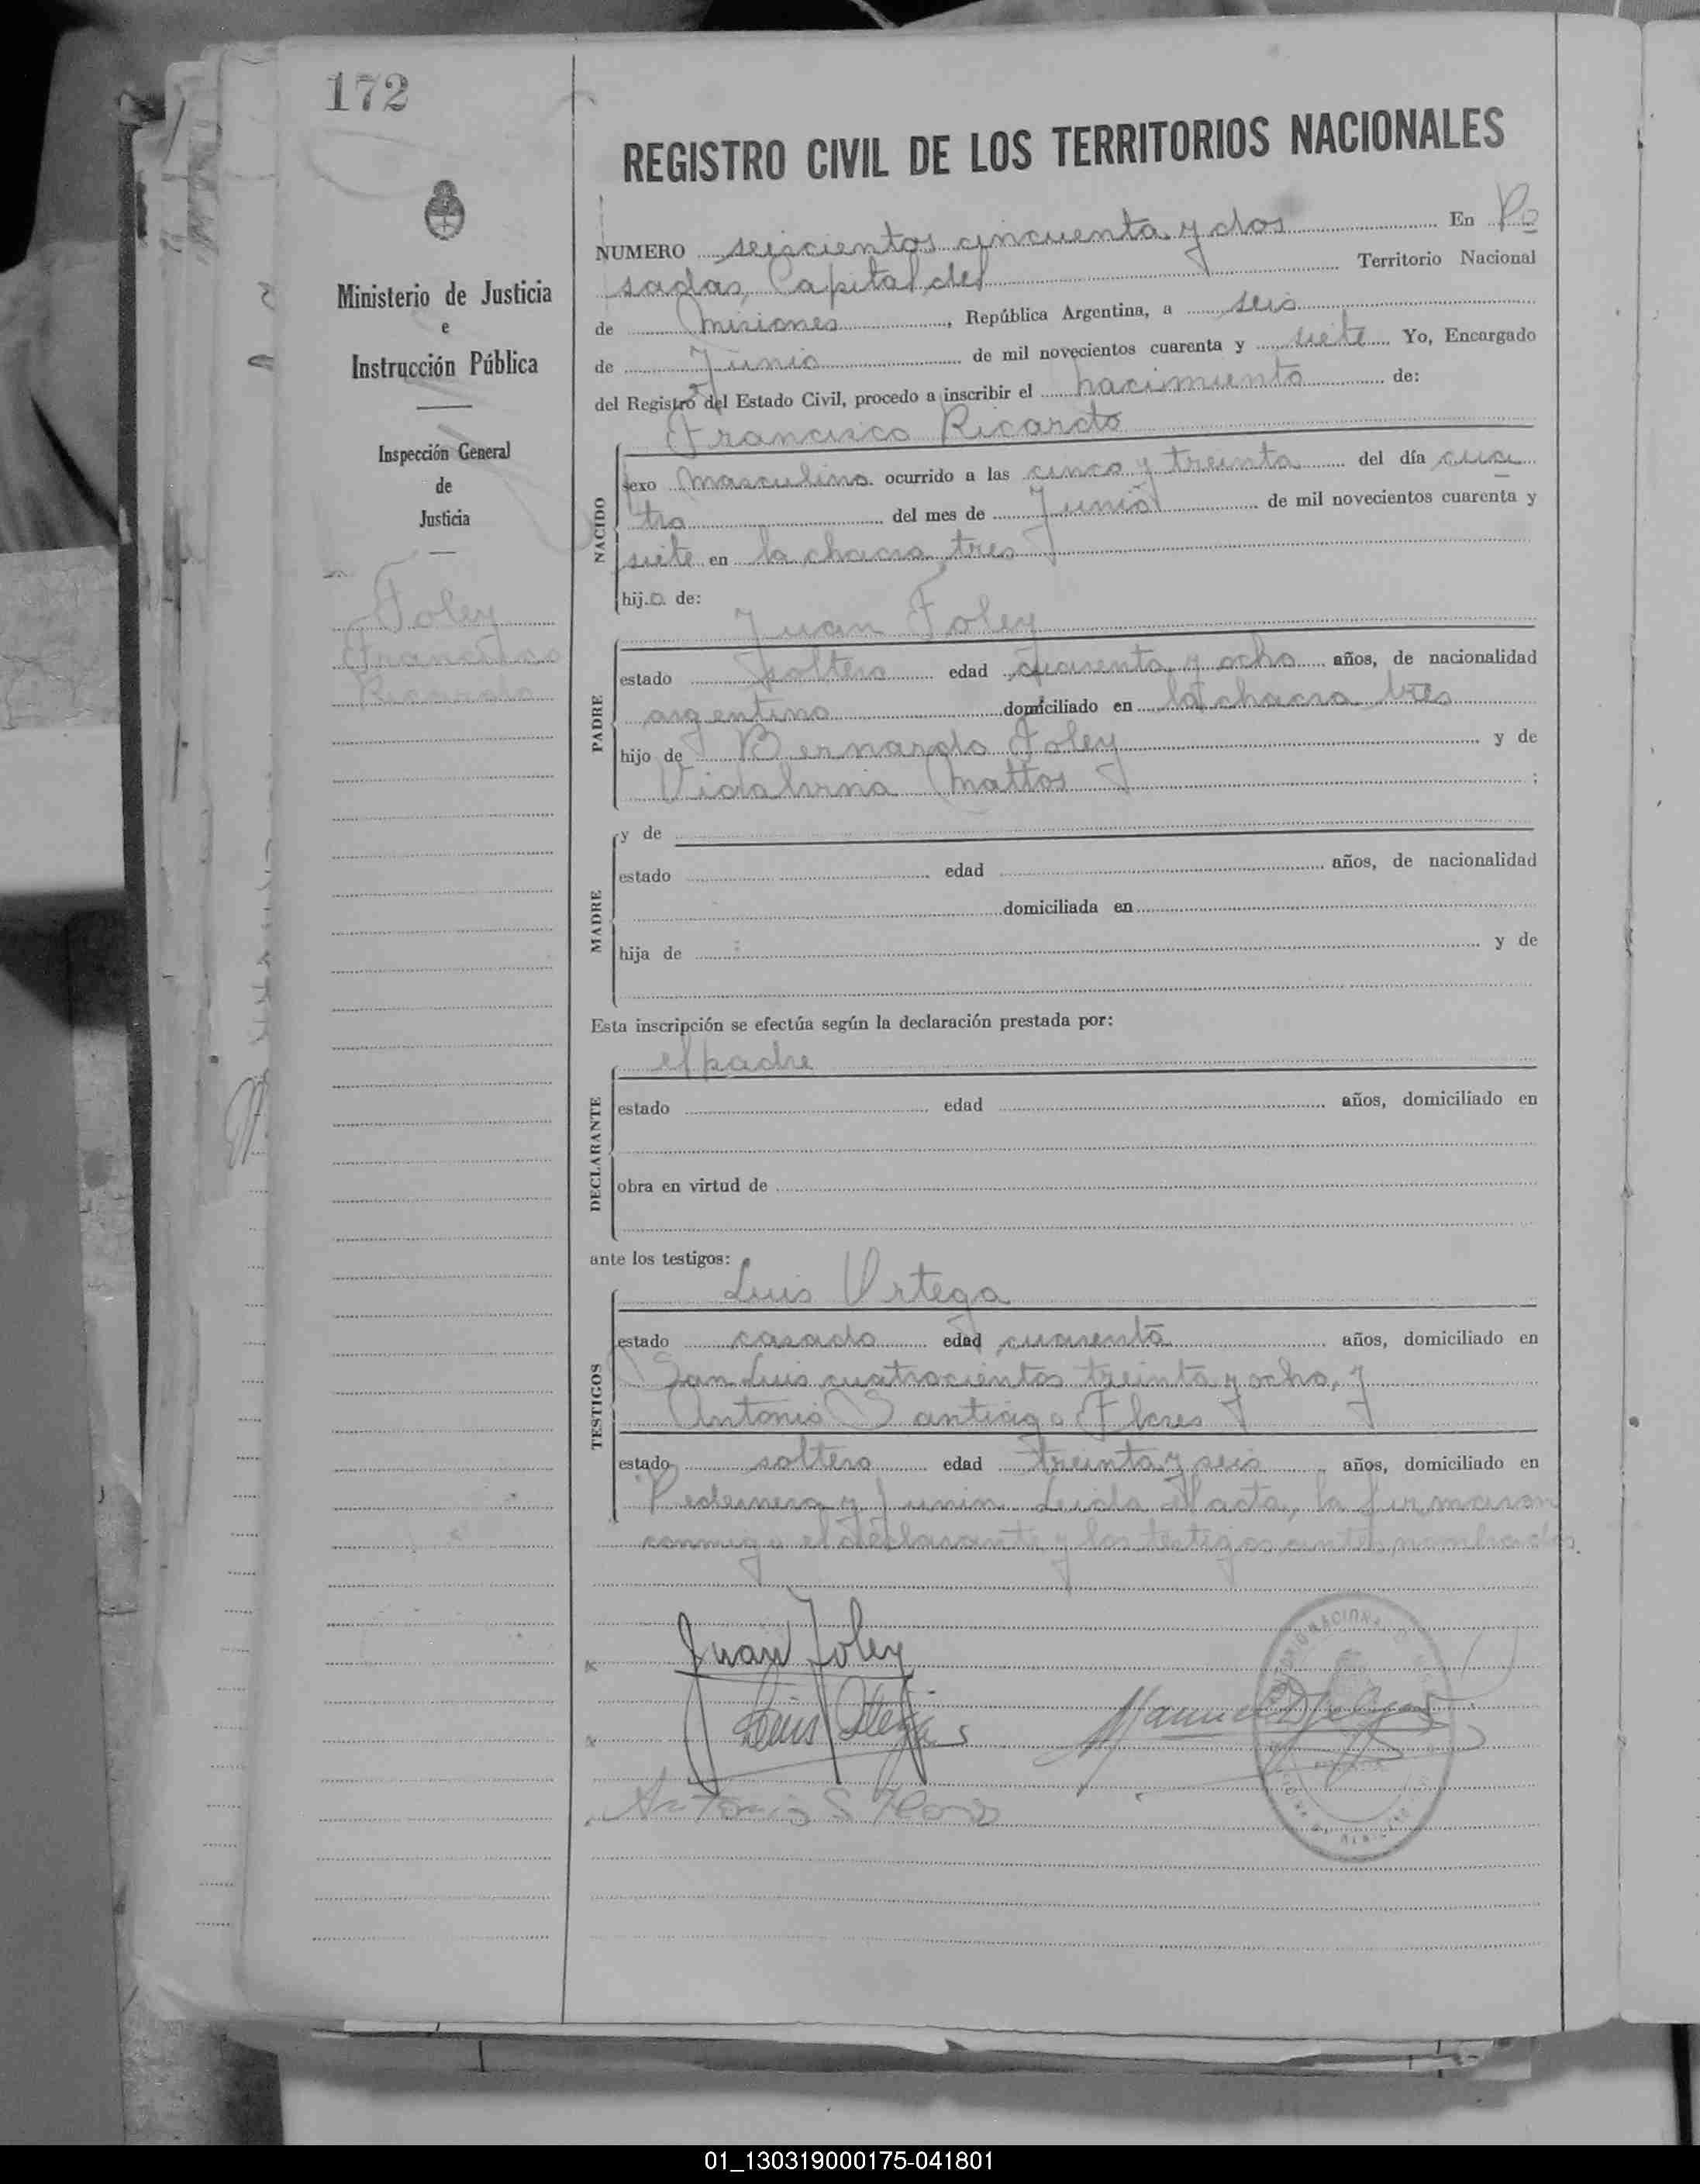 172
REGISTRO CIVIL DE LOS TERRITORIOS NACIONALES
Ministerio de Justicia
e
Instrucción Pública
Inspección General
de
Justicia
Foley
Francisco
Ricardo
NUMERO seiscientos cincuenta y dos En Po
sadas, Capital del Territorio Nacional
de Misiones, República Argentina, a seis
de Junio de mil novecientos cuarenta y siete Yo, Encargado
del Registro del Estado Civil, procedo a inscribir el nacimiento de:
Francisco Ricardo
NACIDO
sexo masculino ocurrido a las cinco y treinta del día cua
tro del mes de Junio de mil novecientos cuarenta y
siete en la chacra tres
hijo de:
Juan Foley
PADRE
estado soltero edad cuarenta y ocho años, de nacionalidad
argentino domiciliado en la chacra tres
hijo de Bernardo Foley y de
Vidalvina Mattos ;
MADRE
y de
estado edad años, de nacionalidad
domiciliada en
hija de y de
Esta inscripción se efectúa según la declaración prestada por:
el padre
DECLARANTE
estado edad años, domiciliado en
obra en virtud de
ante los testigos:
Luis Ortega
TESTIGOS
estado casado edad cuarenta años, domiciliado en
San Luis cuatrocientos treinta y ocho, y
Antonio Santiago Flores
estado soltero edad treinta y seis años, domiciliado en
Pedernera y Junin. Leida el acta, la firmaron
conmigo el declarante y los testigos antes nombrados.
Juan Foley
Luis Ortega
Antonio S Flores
01_130319000175-041801